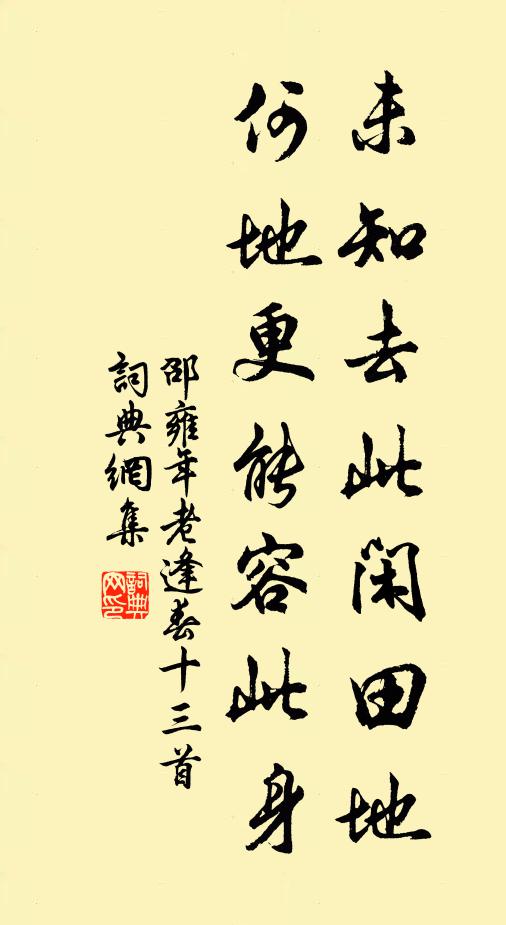 未知去此閑田地
何地更能容此身
邵雍年老逢春十三首
詞典網集
詞典網印